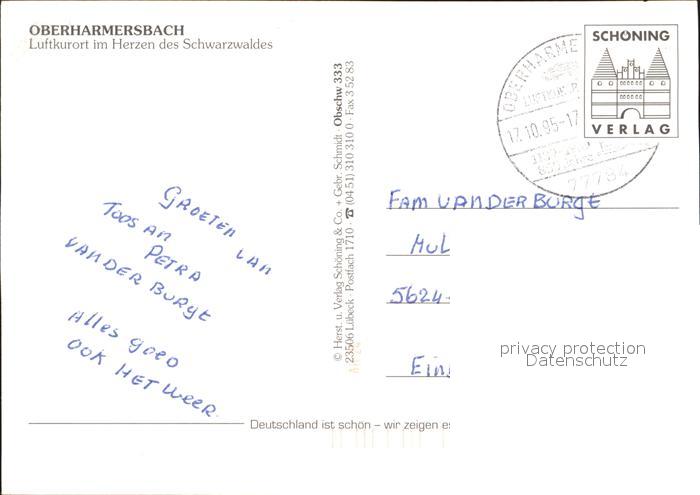 OBERHARMERSBACH
Luftkurort im Herzen des Schwarzwaldes
SCHÖNING
VERLAG
OBERHARME
17.10.95-17
77784
© Herst. u. Verlag Schöning & Co. + Gebr. Schmidt · Obschw 333
23506 Lübeck · Postfach 1710 · ☎ (04 51) 310 310 0 · Fax 3 52 83
GROETEN VAN
TOOS AN
PETRA
VAN DER BURGT
Alles goed
OOK HET Weer.
FAM VAN DER BURGT
Hul
5624-
Ein
privacy protection
Datenschutz
Deutschland ist schön – wir zeigen es